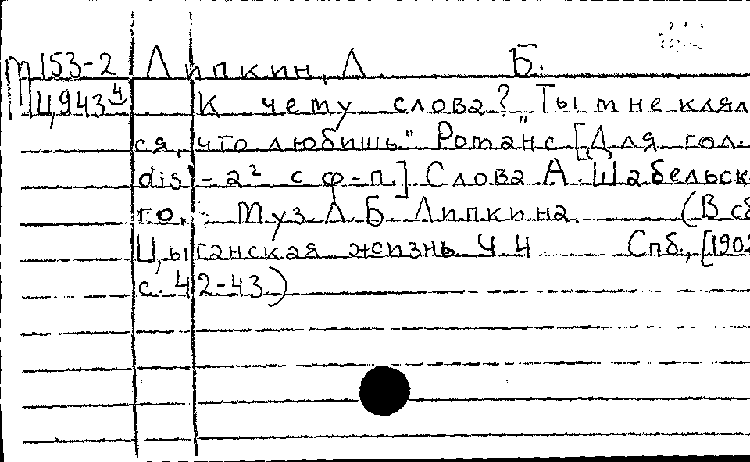 М 153-2 Липкин, Л. Б.
Ц,943 4 К чему слова? "Ты мне клял
ся, что любишь" Романс [Для гол.
dis¹-a² с ф-п.] Слова А. Шабельск
го. Муз Л Б Липкина (В сб
Цыганская жизнь Ч 4 Спб., [1902
с. 42-43.)